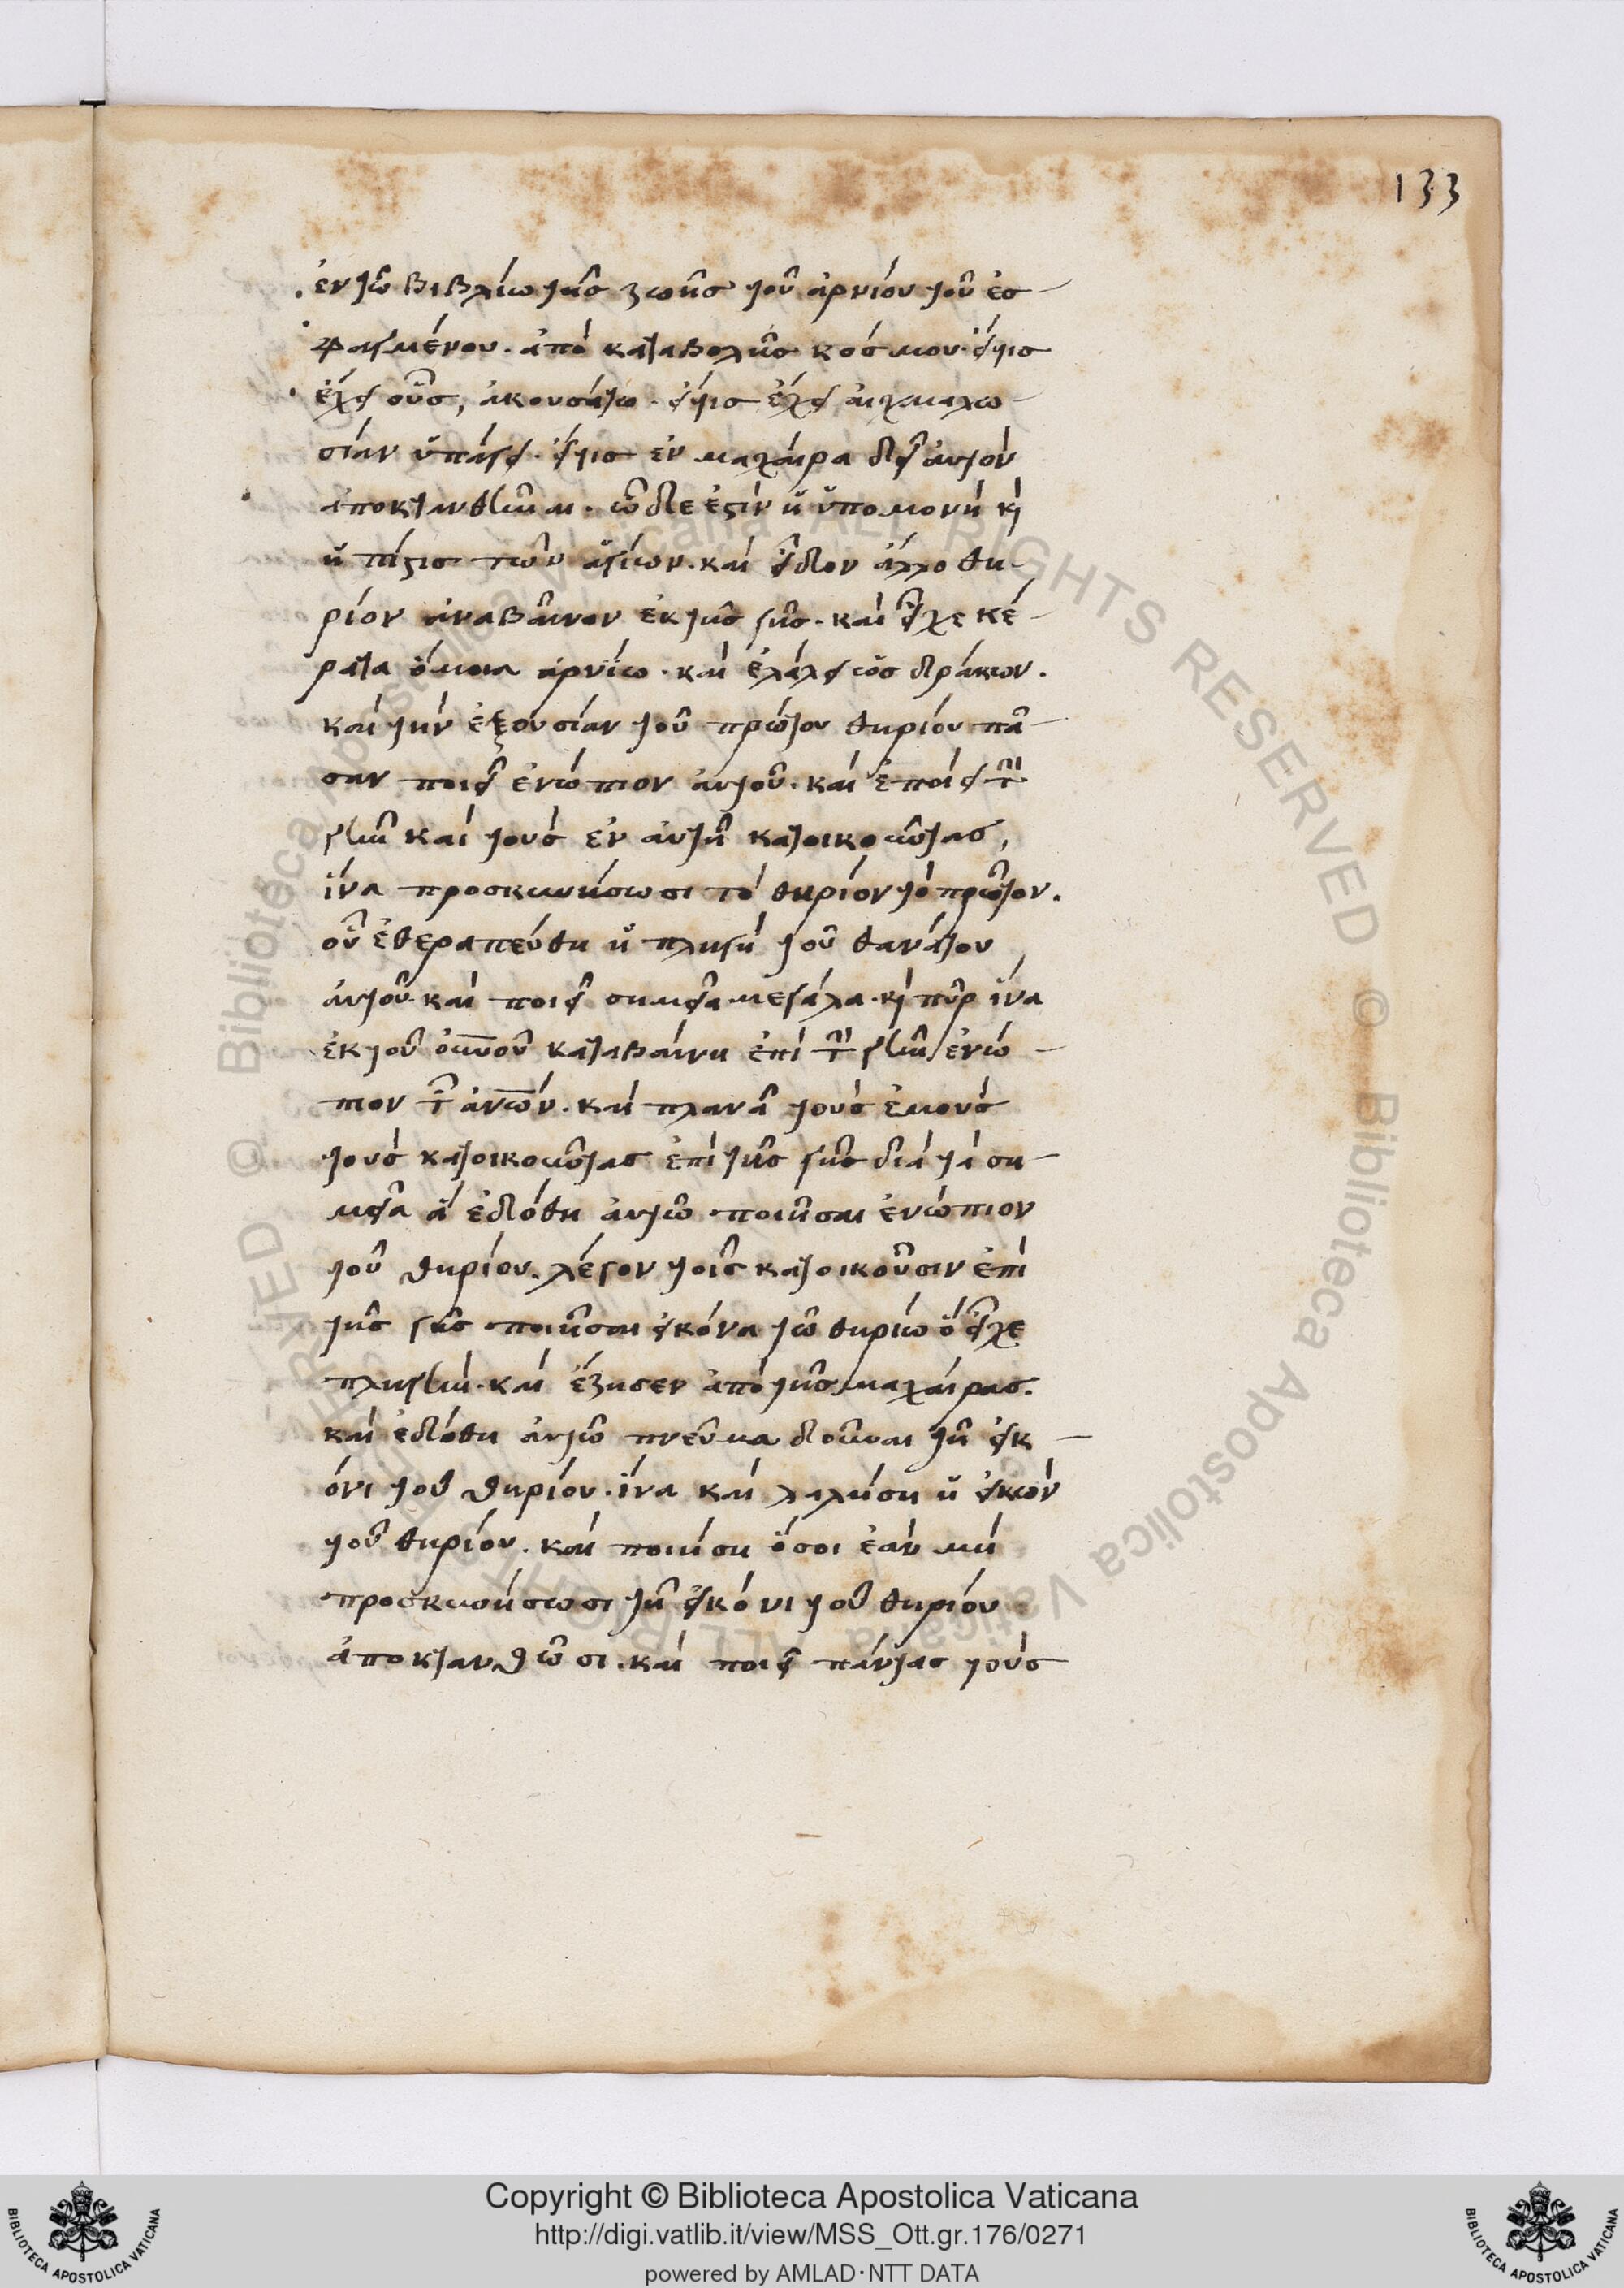 133
ἐν τῶ βιβλίω τῆς ζωῆς τοῦ ἀρνίου τοῦ ἐσ
φαγμένου. ἀπὸ καταβολῆς κόσμου. εἴτις
ἔχει οὖς, ἀκουσάτω. εἴτις ἔχει αἰχμαλω
σίαν ὑπάγει. εἴτις ἐν μαχαίρα δεῖ αὐτὸν
ἀποκτανθῆναι. ὧδε ἐστὶν ἡ ὑπομονὴ κὶ
ἡ πίστις τῶν ἁγίων. καὶ εἶδον ἄλλο θη
ρίον ἀναβαῖνον ἐκ τῆς γῆς. καὶ εἶχε κέ
ρατα ὅμοια ἀρνίω. καὶ ἐλάλει ὡς δράκων.
καὶ τὴν ἐξουσίαν τοῦ πρώτου θηρίου πᾶ
σαν ποιεῖ ἐνώπιον αὐτοῦ. καὶ ἐποίει τὴν
γῆν καὶ τοὺς ἐν αὐτῆ κατοικοῦντας,
ἵνα προσκυνήσωσι τὸ θηρίον τὸ πρῶτον.
οὗ ἐθεραπεύθη ἡ πληγὴ τοῦ θανάτου
αὐτοῦ. καὶ ποιεῖ σημεῖα μεγάλα. κὶ πῦρ ἵνα
ἐκ τοῦ οὐνοῦ καταβαίνη ἐπὶ τὴν γῆν ἐνώ
πιον τῶν ἀνῶν. καὶ πλανᾶ τοὺς ἐμοὺς
τοὺς κατοικοῦντας ἐπὶ τῆς γῆς διὰ τὰ ση
μεῖα ἃ ἐδόθη αὐτῶ ποιῆσαι ἐνώπιον
τοῦ θηρίου. λέγον τοῖς κατοικοῦσιν ἐπὶ
τῆς γῆς ποιῆσαι εἰκόνα τῶ θηρίω ὃ εἶχε
πληγὴν. καὶ ἔζησεν ἀπὸ τῆς μαχαίρας.
καὶ ἐδόθη αὐτῶ πνεῦμα δοῦναι τῆ εἰκ
όνι τοῦ θηρίου. ἵνα καὶ λαλήση ἡ εἰκὼν
τοῦ θηρίου. καὶ ποιήση ὅσοι ἐὰν μὴ
προσκυνήσωσι τῆ εἰκόνι τοῦ θηρίου
ἀποκτανθῶσι. καὶ ποιεῖ πάντας τοὺς
Copyright © Biblioteca Apostolica Vaticana
http://digi.vatlib.it/view/MSS_Ott.gr.176/0271
powered by AMLAD·NTT DATA